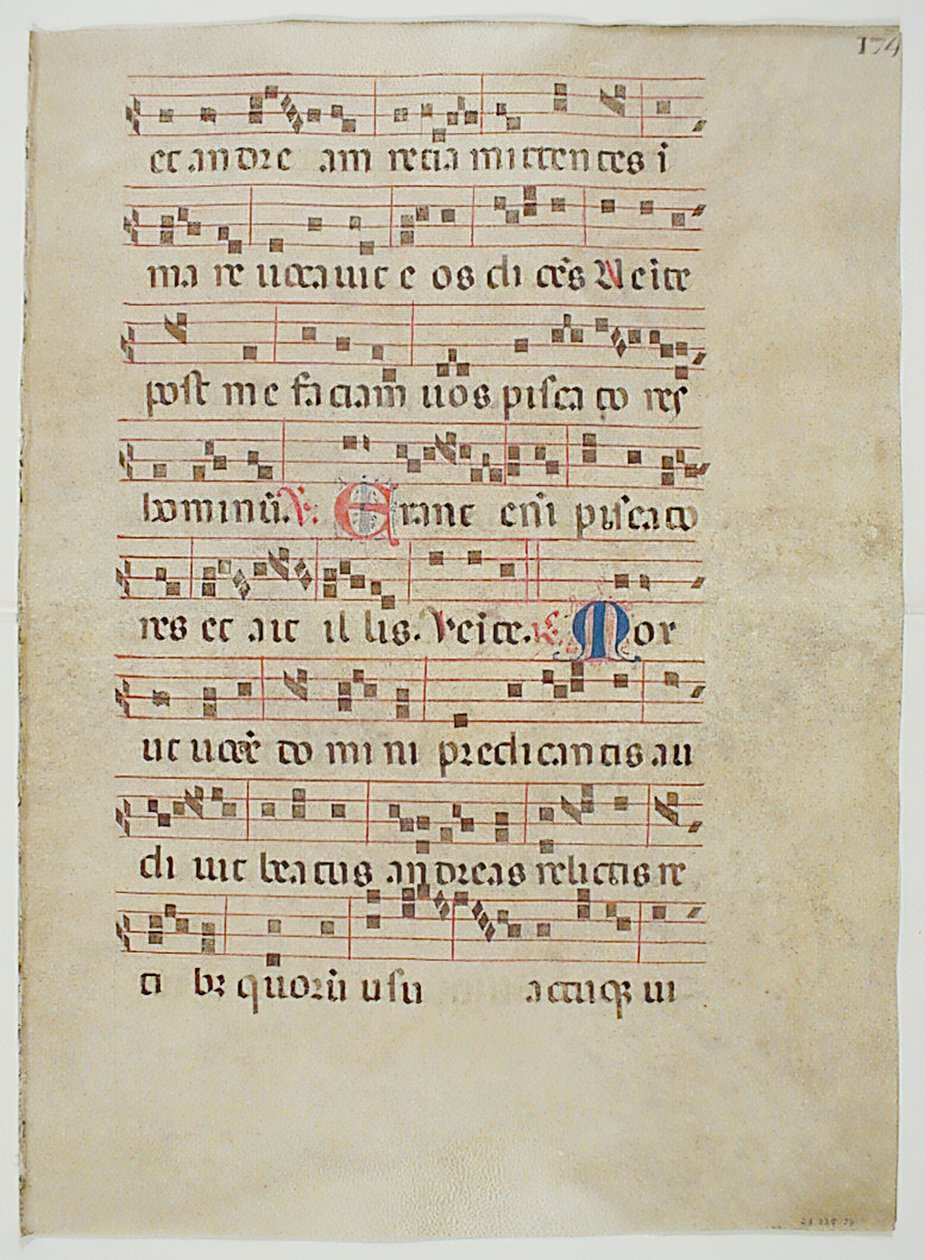 174
et andre am retia mittentes i
ma re uocauit e os di cēs Ueīte
post me faciam uos pisca to res
hominū. V. Erant eni pisca to
res et ait il lis. Veīte. R. Mor
ut uocē do mi ni predicantis au
di uit beatus andreas relictis re
ti bꝫ quorū usu actuqꝫ ui